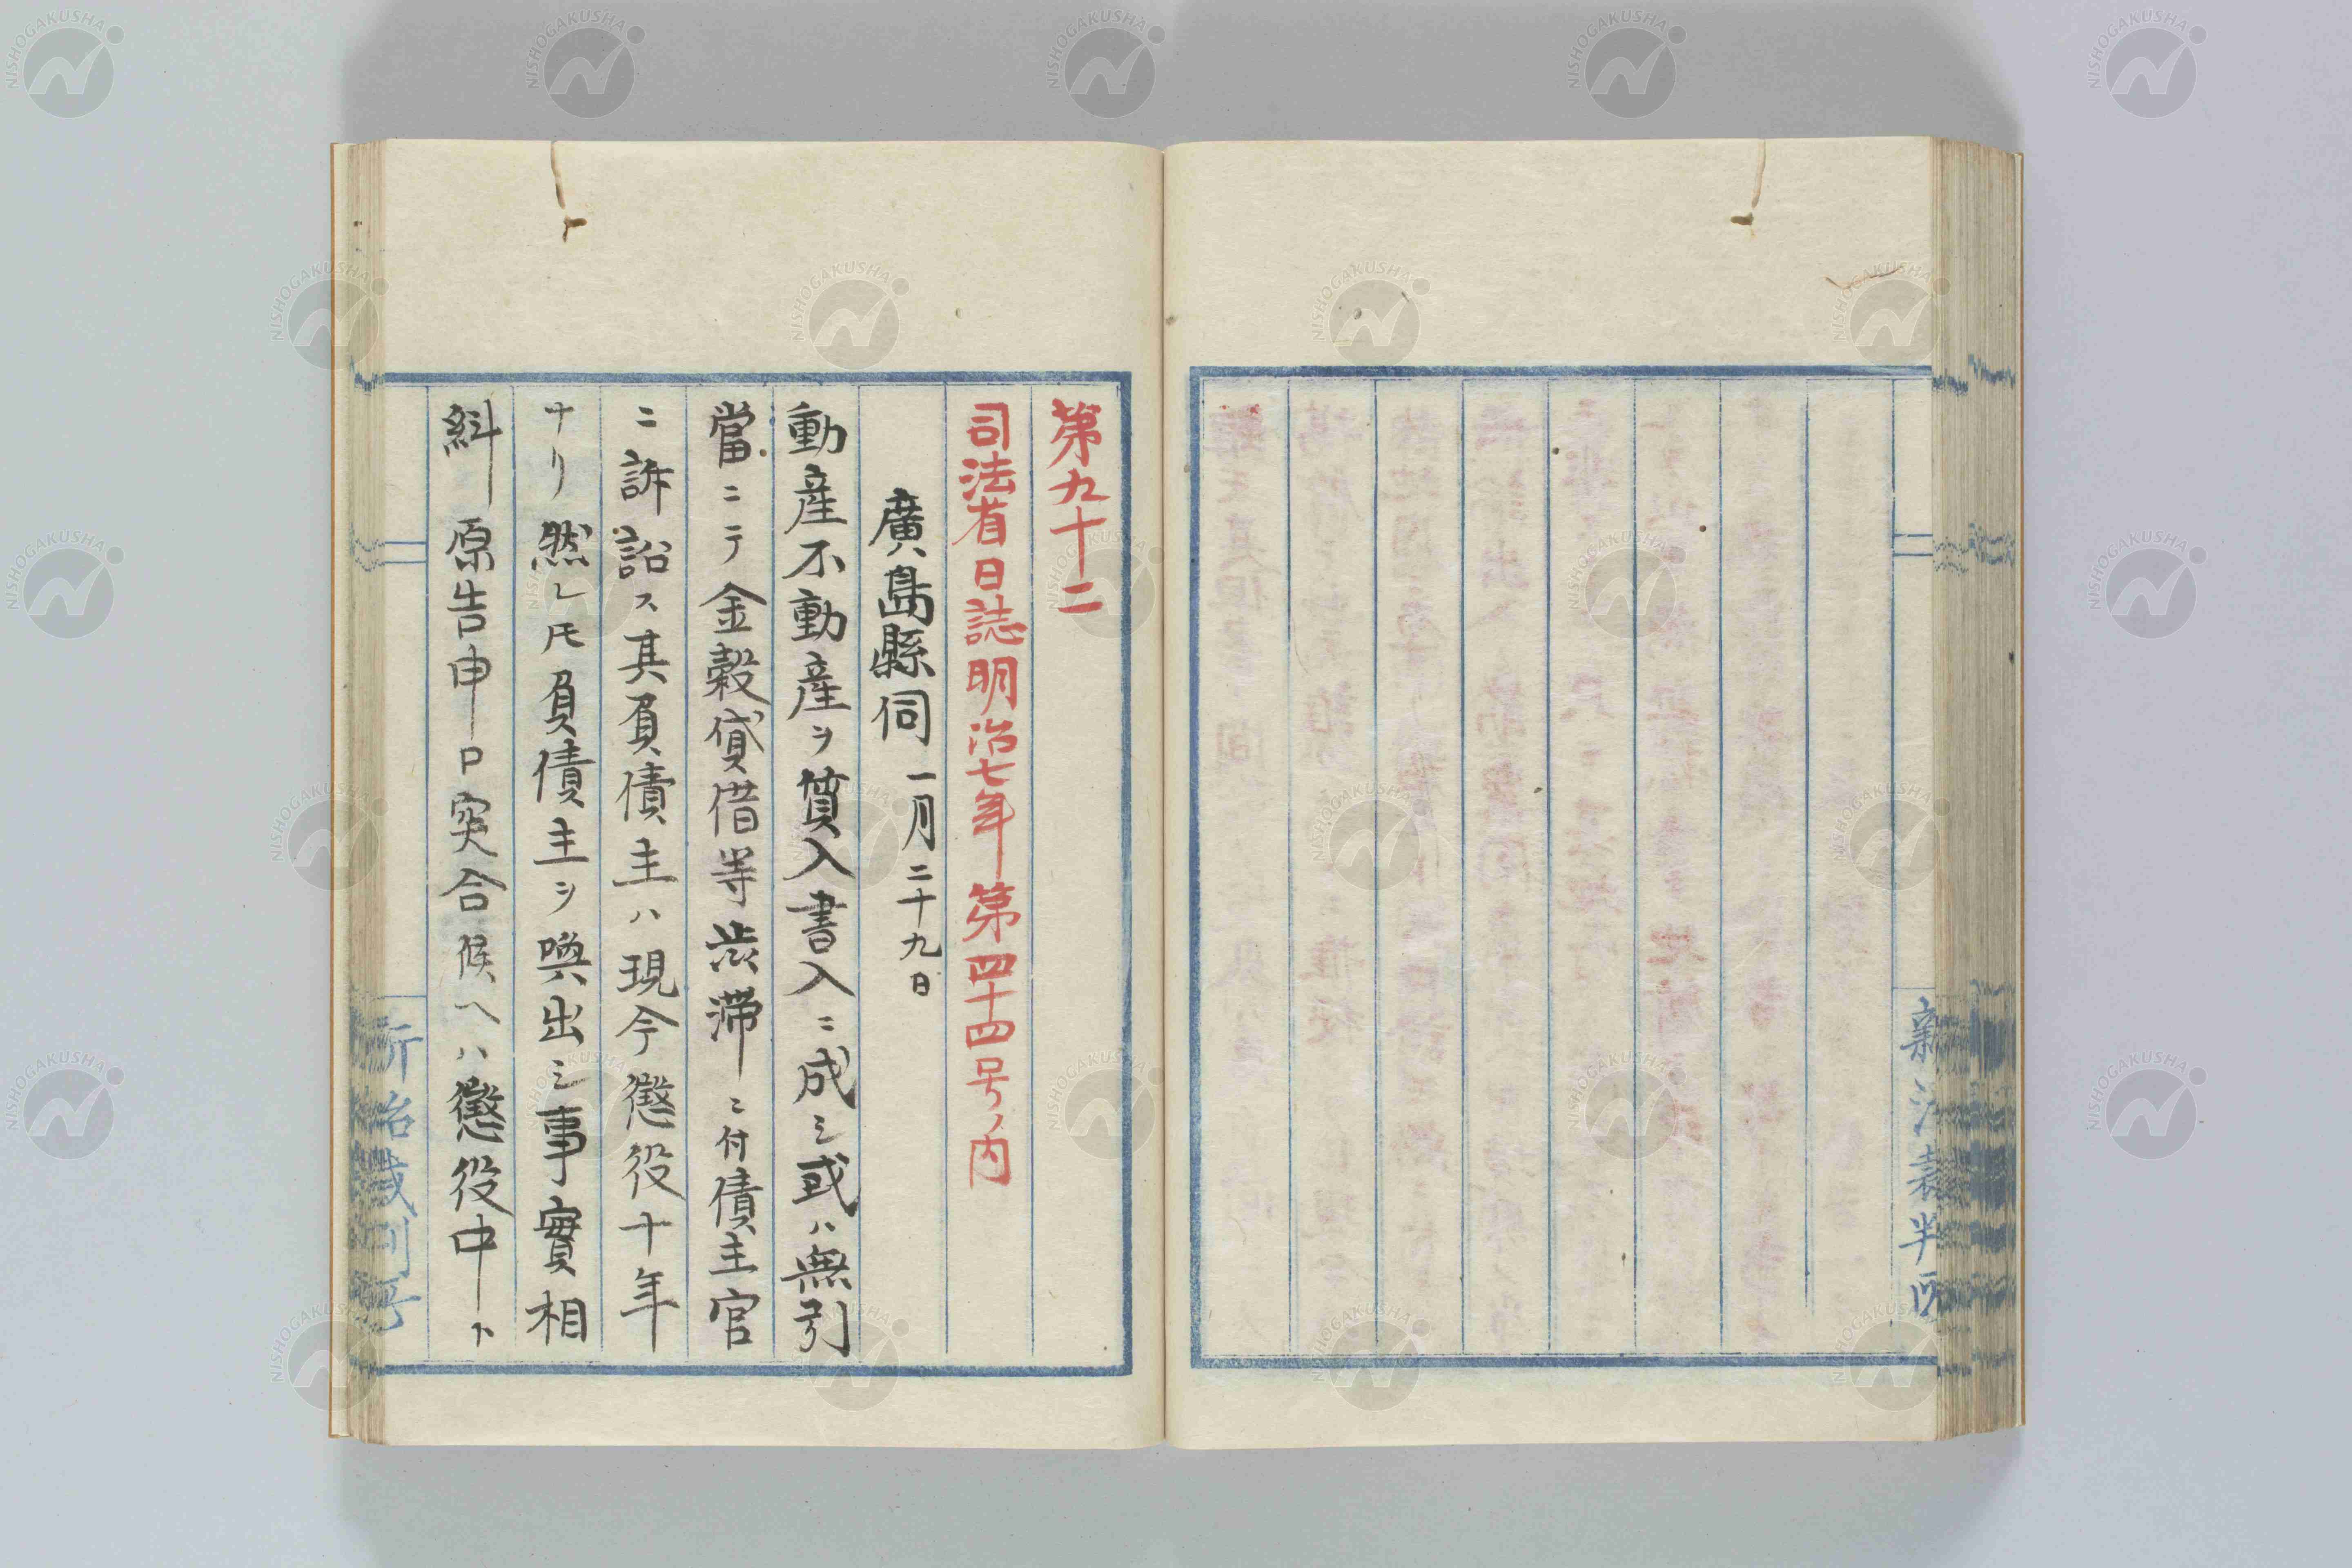 第九十二
司法省日誌明治七年第四十四号ノ内
廣島縣伺 一月二十九日
動産不動産ヲ質入書入ニ成シ或ハ無引
當ニテ金穀貸借等渋滞ニ付債主官
ニ訴訟ス其負債主ハ現今懲役十年
ナリ然レ𪜈負債主ヲ喚出シ事實相
糾シ原告申口突合候ヘハ懲役中ト
新治裁判所
NISHOGAKUSHA